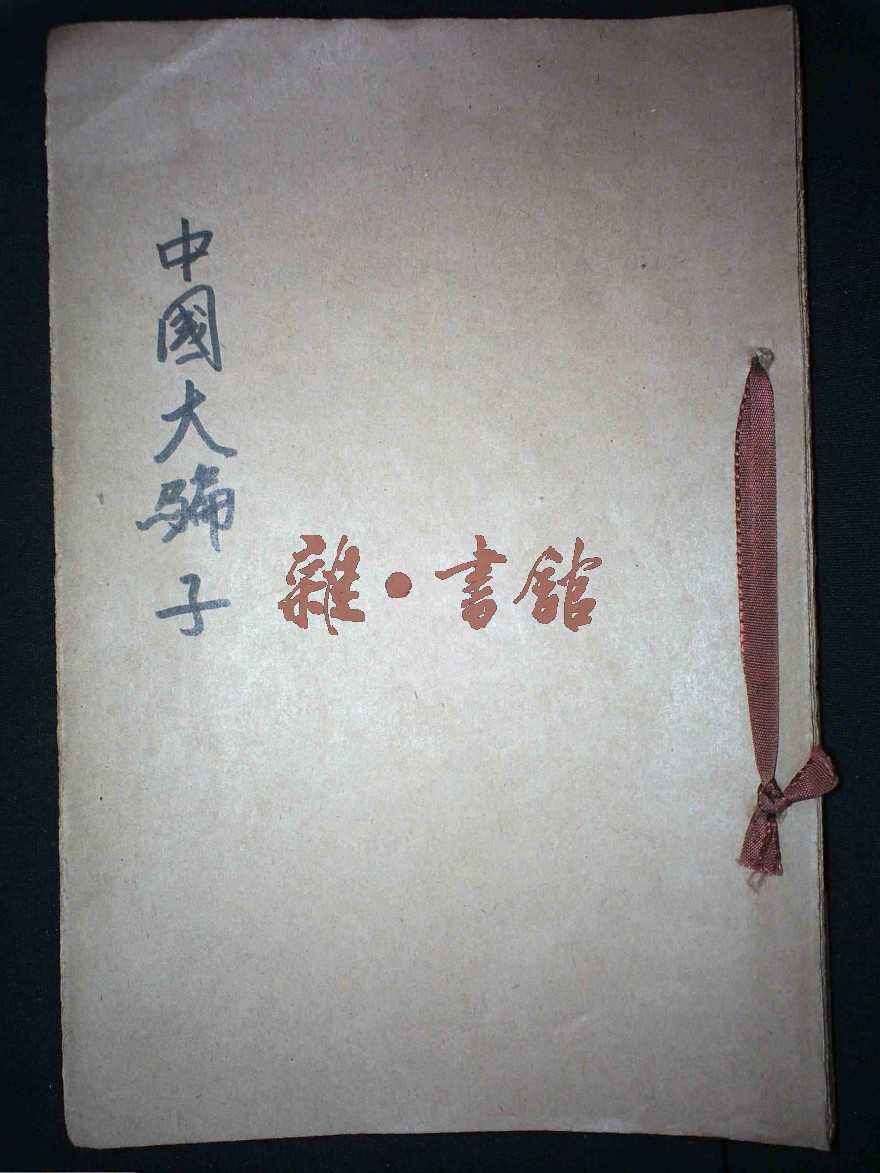 中國大骗子
雜·書館